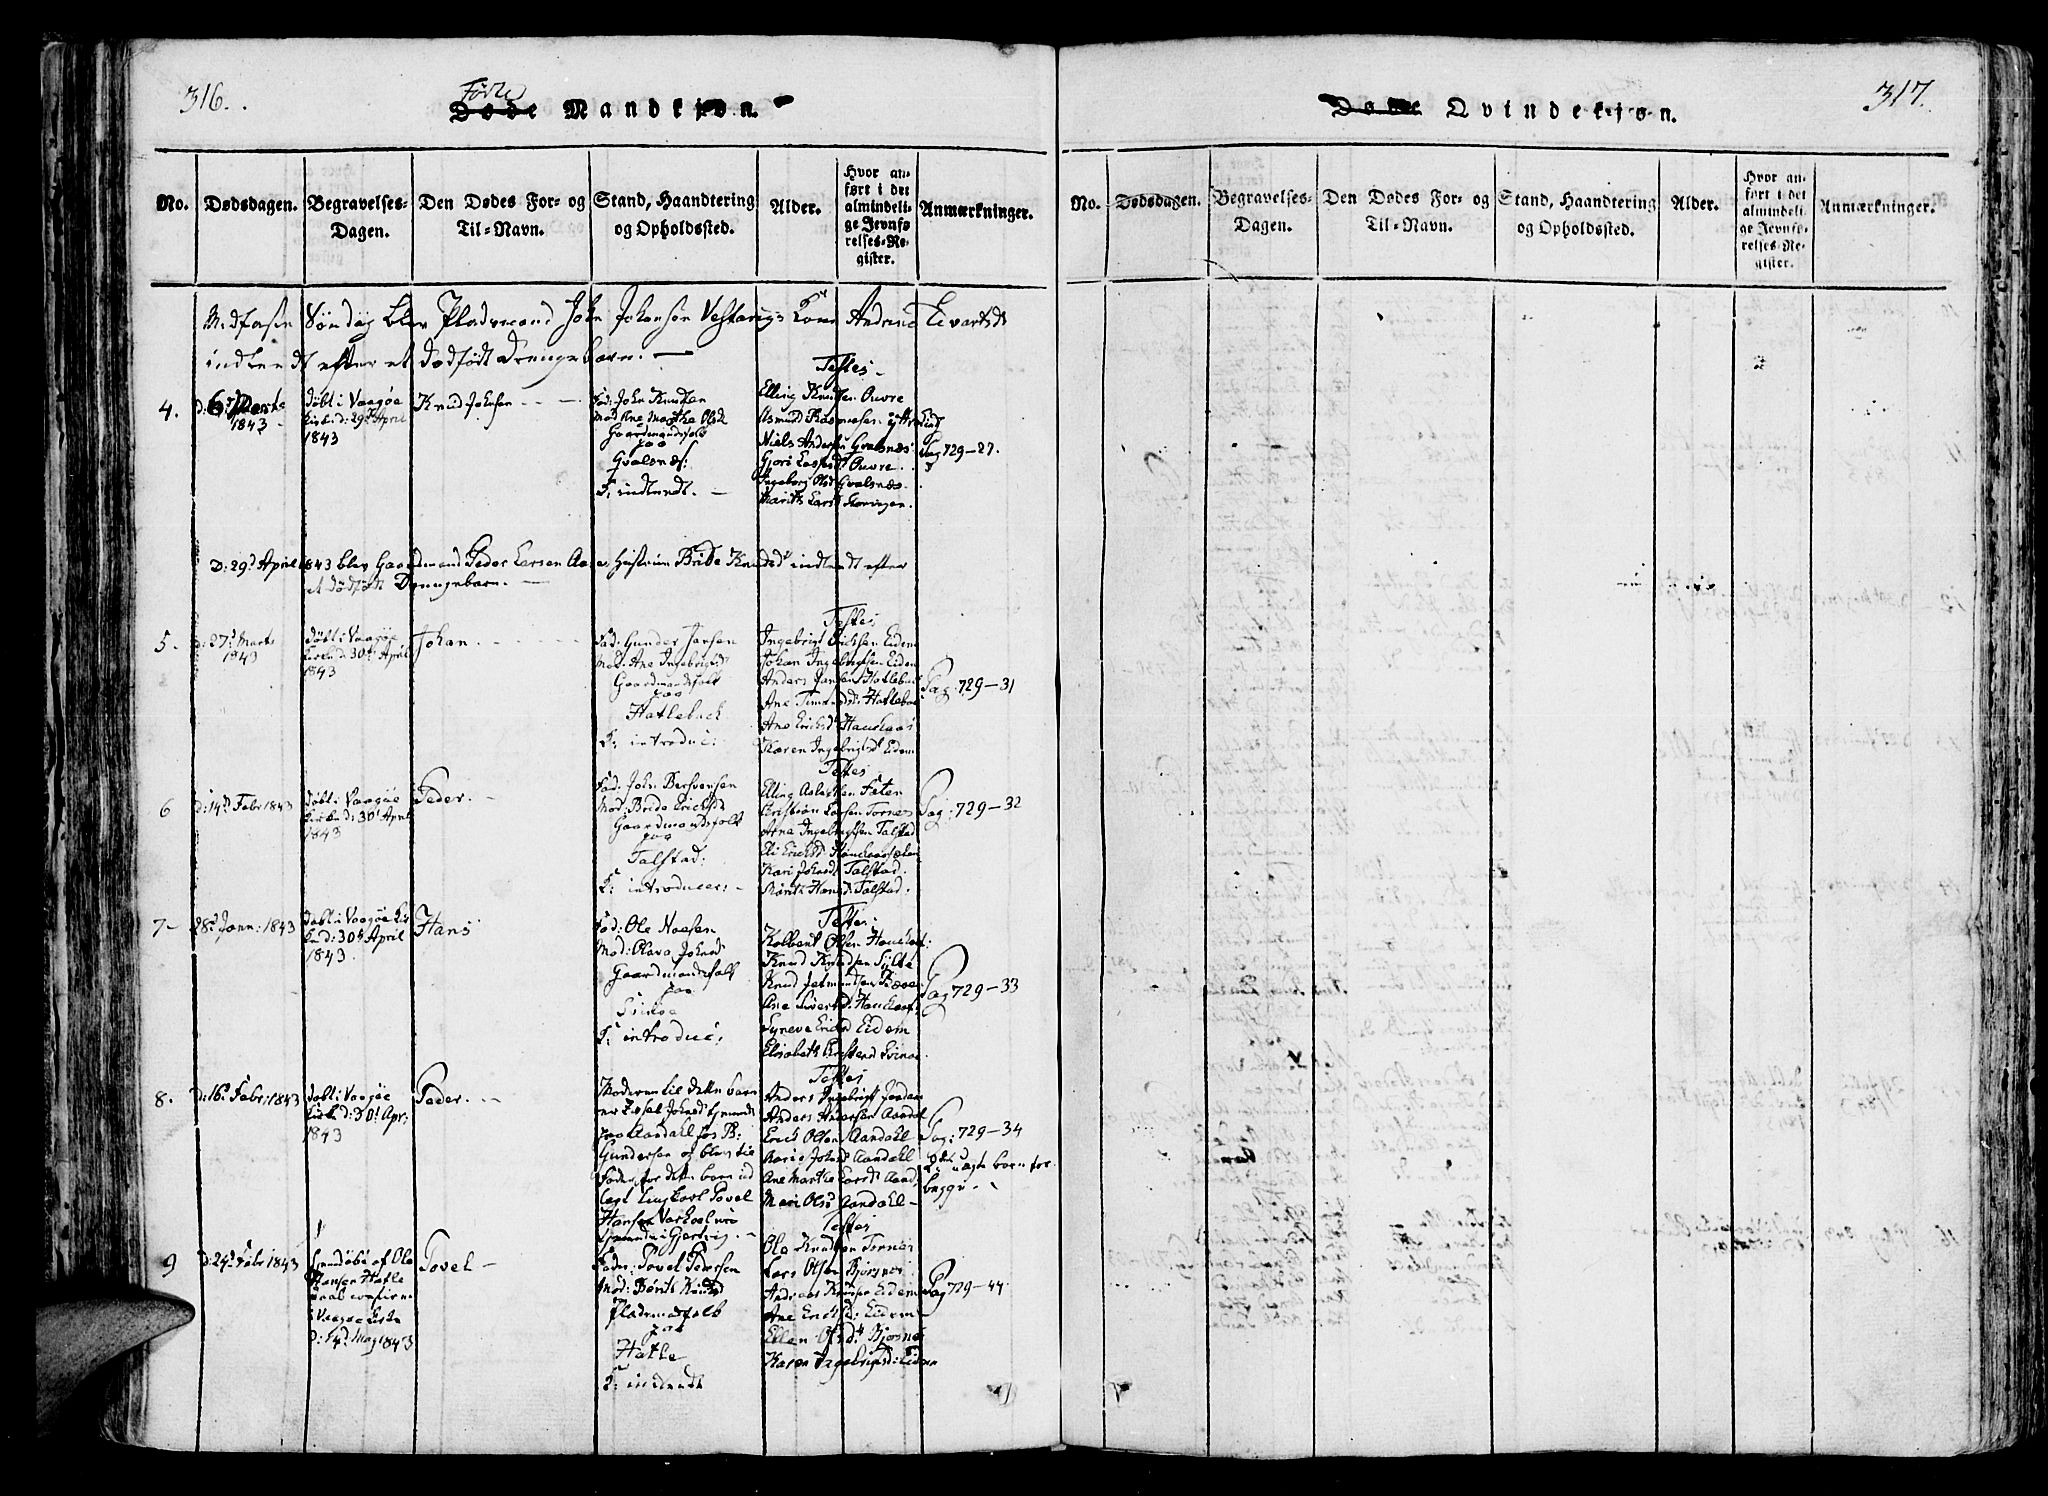 316.
Fødte
Døde Mandkjøn.
No.
Dødsdagen.
Begravelses-
Dagen.
Den Dødes For- og
Til-Navn.
Stand, Haandtering
og Opholdssted.
Alder.
Hvor an-
ført i det
almindeli-
ge Jevnfø-
relses-Re-
gister.
Anmærkninger.
Midfaste Søndag blev Pladsmand John Johansen Vestavigs Kone Andrine Sivertsdr
indledt efter et dødfødt Drengebarn. —
4.
d: 6te Marts
1843
Døbt i Vaagøe
Kirke d: 29de April
1843
Knud Johnsen
Fad: John Knudsen
Mod: Ane Marthe Olsdr
Gaardmandsfolk
paa
Gvalsnæs:
K: indledt. —
Testes
Elling Knudsen Ouvre
Niels Andersen Gvalsnæs
Ouvre
Ingeborg Olsdr Gvalsnæs
Marith Larsd
Pag 729—27.
D: 29de April 1843 blev Gaardmand Peder Larsen Aas Hustru Brite Knudsdr indledt efter
et dødfødt Drengebarn. —
5.
d: 27de Marts
1843
Døbt i Vaagøe
Kirke d: 30te April
1843
Johan.
Fad: Gunder Jensen
Mod: Ane Ingebrigtsd
Gaardmandsfolk
paa
Hatleback
K: introduc:
Testes
Ingebrigt Erichsen Eidem
Johan Ingebrigtsen Eidem
Anders Jansen Hatleback
Ane Hatleback
Ane Ericksd Hauckaas
Karen Ingebrigtsd Eidem
Pag: 729—31
6
d: 14de Febr 1843
Døbt i Vaagøe
Kirke d: 30te April
1843
Peder. —
Fad: John Bersvensen
Mod: Brite Ericksd
Gaardmandsfolk
paa
Talstad:
K: introducer: —
Testes
Elling Aslacksen Sæter
Christian Larsen Tornes
Arne Ingebrigtsen Talstad
Eli Ericksd
Kari Johnsd Talstad.
Marit Hansd Talstad.
Pag: 729—32
7—
28de Janr: 1843
Døbt i Vaagøe Kir-
ke d: 30te April
1843.
Hans
Fad: Ole Noesen
Mod: Olava Johnsd
Gaardmandsfolk
paa
Svinøe
K: introduc:
Testes
Kolbent Olsen Hauckaas:
Knud Knudsen Sylte
Knud Jetmundsen
Ane Sivertsd. Hauckaas
Synneve Ericksd Eidem
Elisabeth Svinøe
Pag 729—33
8.
d: 16de Febr: 1843
Døbt i Vaagøe
Kirke d: 30te Apr:
1843
Peder.
Moderen til dette barn
er Zissel Johnsd tjenende
paa Aandahl hos B:
Gundersen og blev til
Fader for dette barn ud
lagt Ungkarl Povel
Hansen
tjenende i Gjertvig. —
Testes
Anders Ingebrigtsen
Anders Andersen Aandal
Erick Olsen Aandahl
Johnsd Aandahl
Ane Marthe Larsd Aand.
Mari Olsd Aandahl —
Pag: 729—34
2det uægte barn for
begge. —
9
d: 24de Febr 1843
hjemdøbt af Ole
Hansen Hatle
Daab confirm.
i Vaagøe Kirke
d: 14de May 1843
Povel —
Fader: Povel Pedersen
Mod: Børith Knudsd
Pladsmandsfolk
paa
Hatle
K: indledt
Testes
Ole Knudsen Tornes
Lars Olsen Bjørsnes
Andreas Knudsen Eidem
Ane Ericksd: Eidem
Ellen Olsdr Bjørsnes
Karen Ingebrigtsd: Eidem
Pag 729—44
317.
Døde Qvindekjøn.
No.
Dødsdagen.
Begravelses-
Dagen.
Den Dødes For- og
Til-Navn.
Stand, Haandtering
og Opholdssted.
Alder.
Hvor an-
ført i det
almindeli-
ge Jevnfø-
relses-Re-
gister.
Anmærkninger.